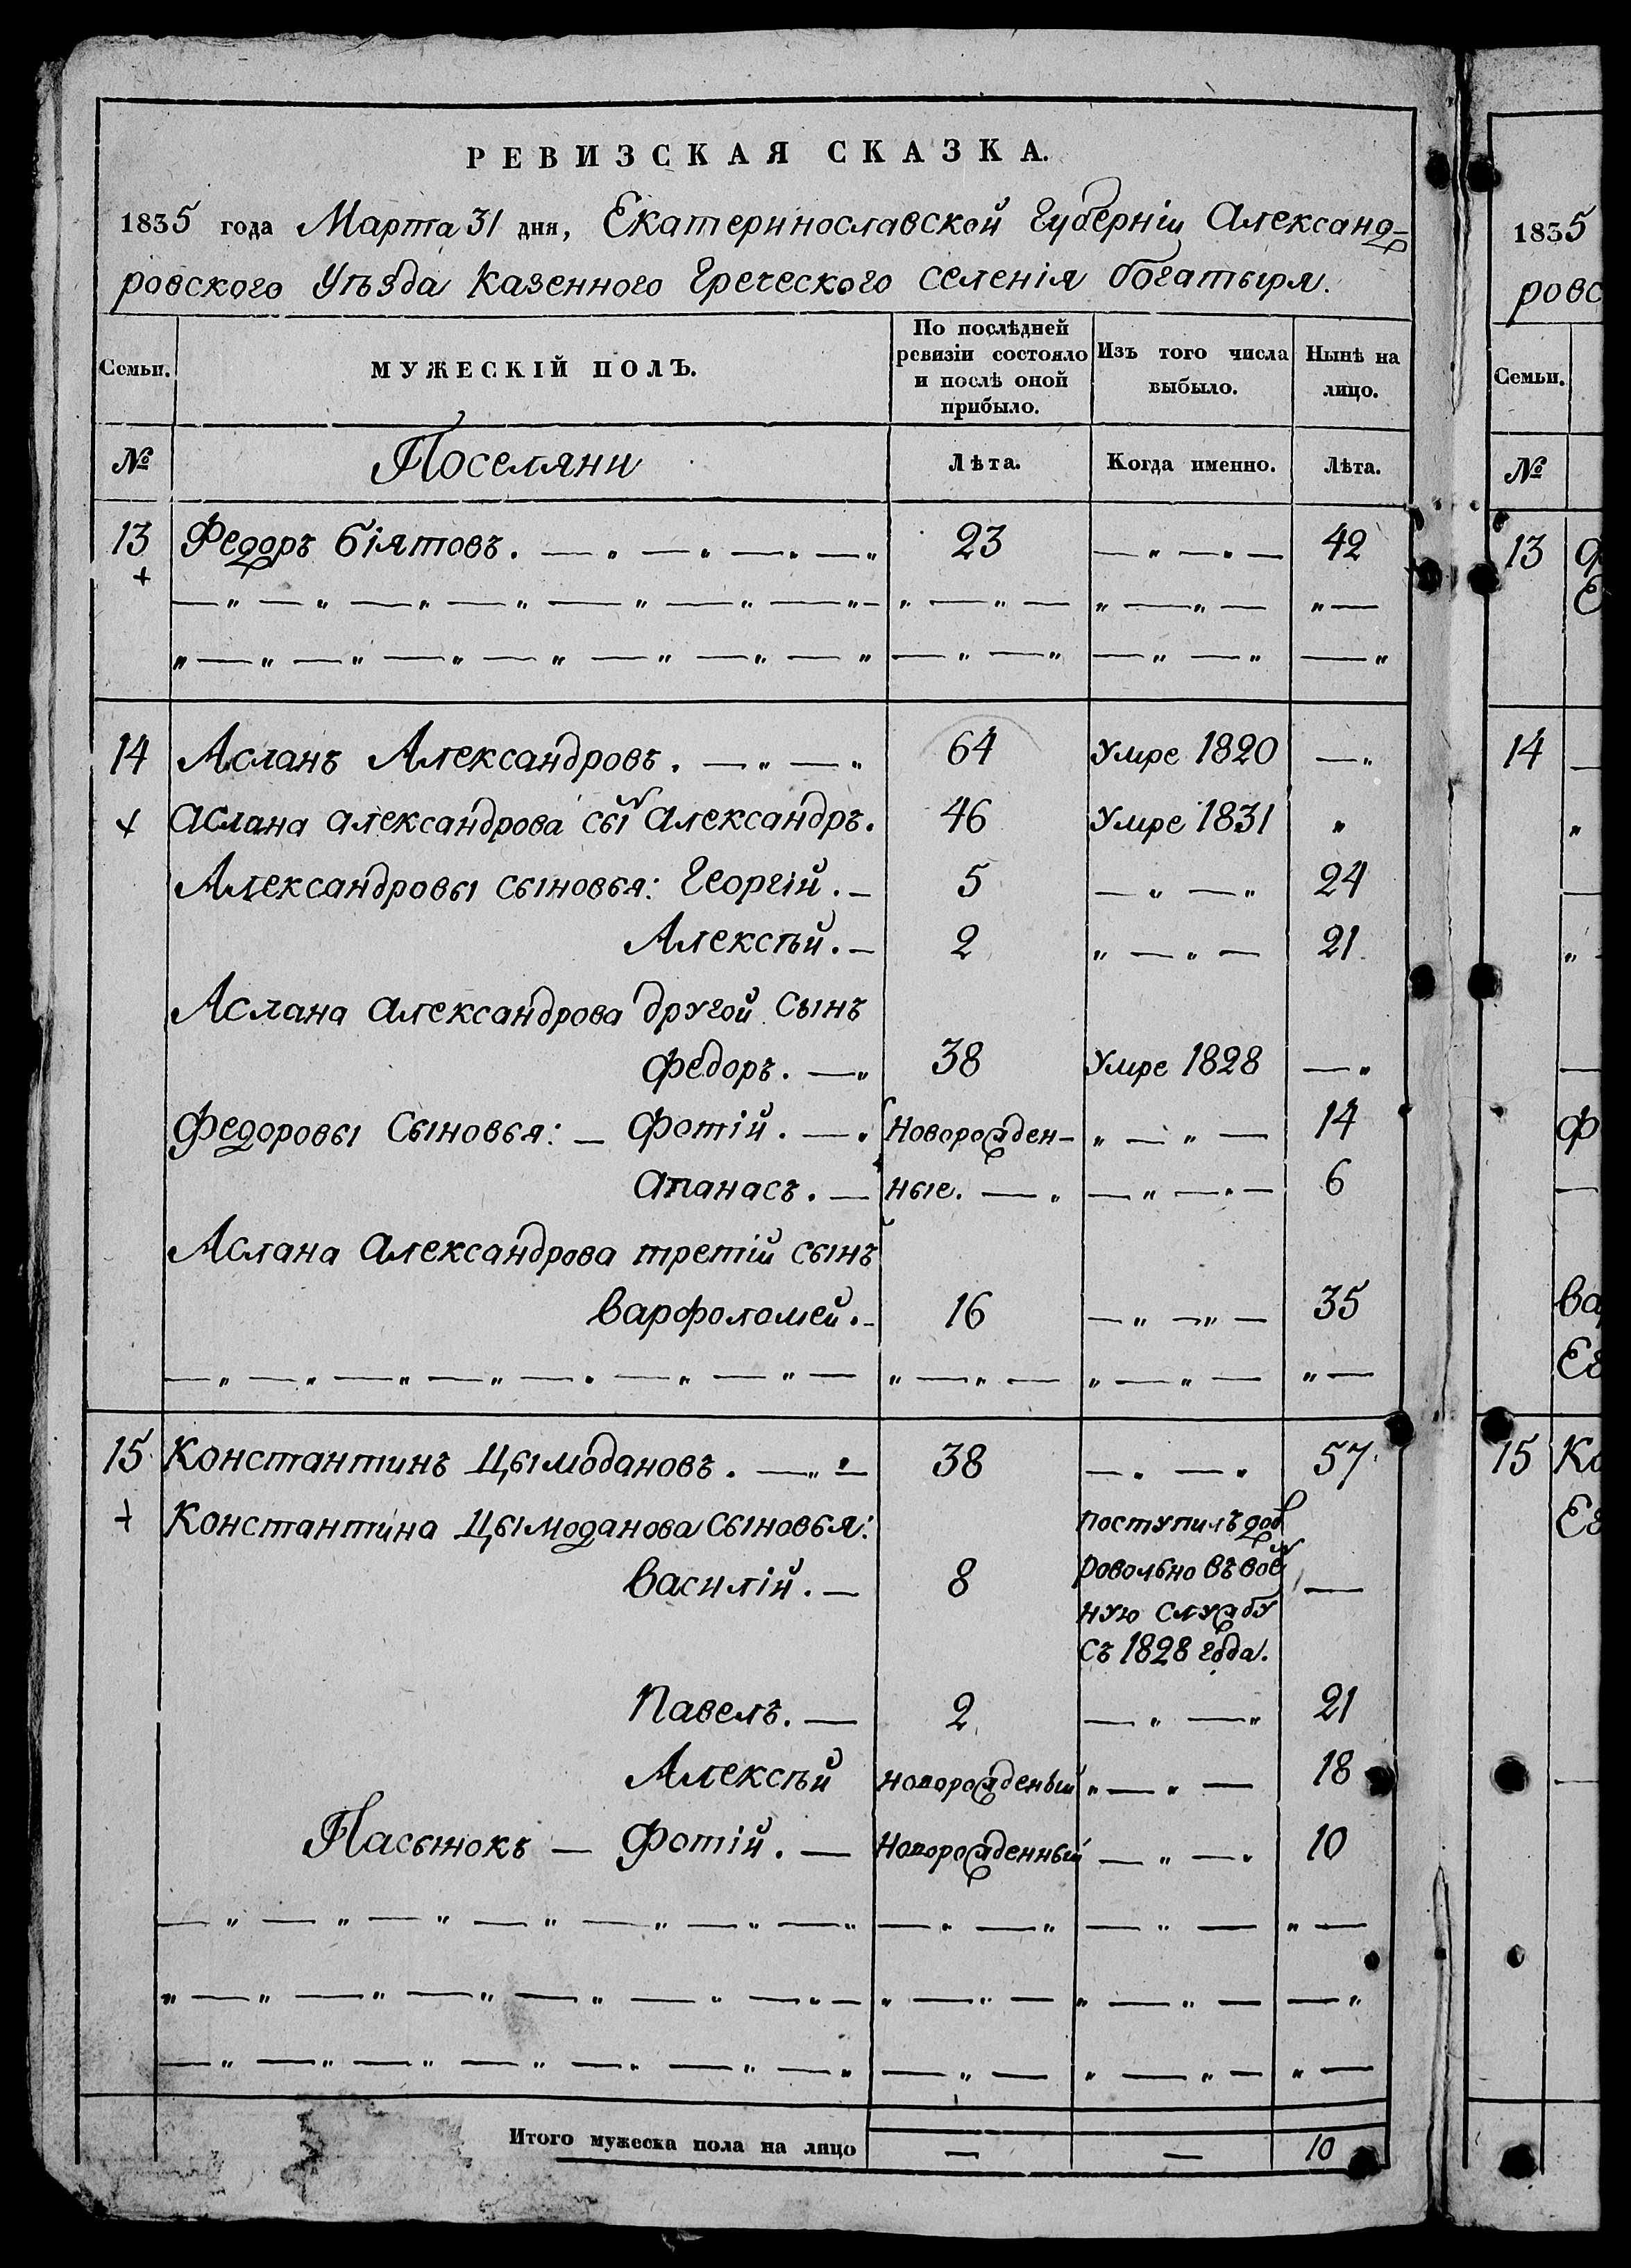 РЕВИЗСКАЯ СКАЗКА.
1835 года Марта 31 дня, Екатеринославской Губерніи Александ-
ровского Уѣзда Казенного Греческого селенія Богатыря.
Семьи. МУЖЕСКІЙ ПОЛЪ. По послѣдней ревизіи состояло и послѣ оной прибыло. Изъ того числа выбыло. Нынѣ на лицо.
№ Поселяни Лѣта. Когда именно. Лѣта.
13 Федоръ Біятовъ. 23 42
14 Асланъ Александровъ. 64 Умре 1820
Аслана Александрова сын Александръ. 46 Умре 1831
Александровы сыновья: Георгій. 5 24
Алексѣй. 2 21
Аслана Александрова другой сынъ
Федоръ. 38 Умре 1828
Федоровы Сыновья: Фотій. Новорожден- 14
Апанасъ. ные. 6
Аслана Александрова третій сынъ
Варфоломей. 16 35
15 Константинъ Цымодановъ. 38 57
Константина Цымоданова сыновья: поступилъ доб
ровольно въ воен
Василій. 8
ную службу
съ 1828 года.
Павелъ. 2 21
Алексѣй новорожденый 18
Пасынокъ Фотій. Новорожденный 10
Итого мужеска пола на лицо 10
1835
ровс
Семьи.
№
13
Е
14
Ф
Ва
Ев
15 Ко
Ев